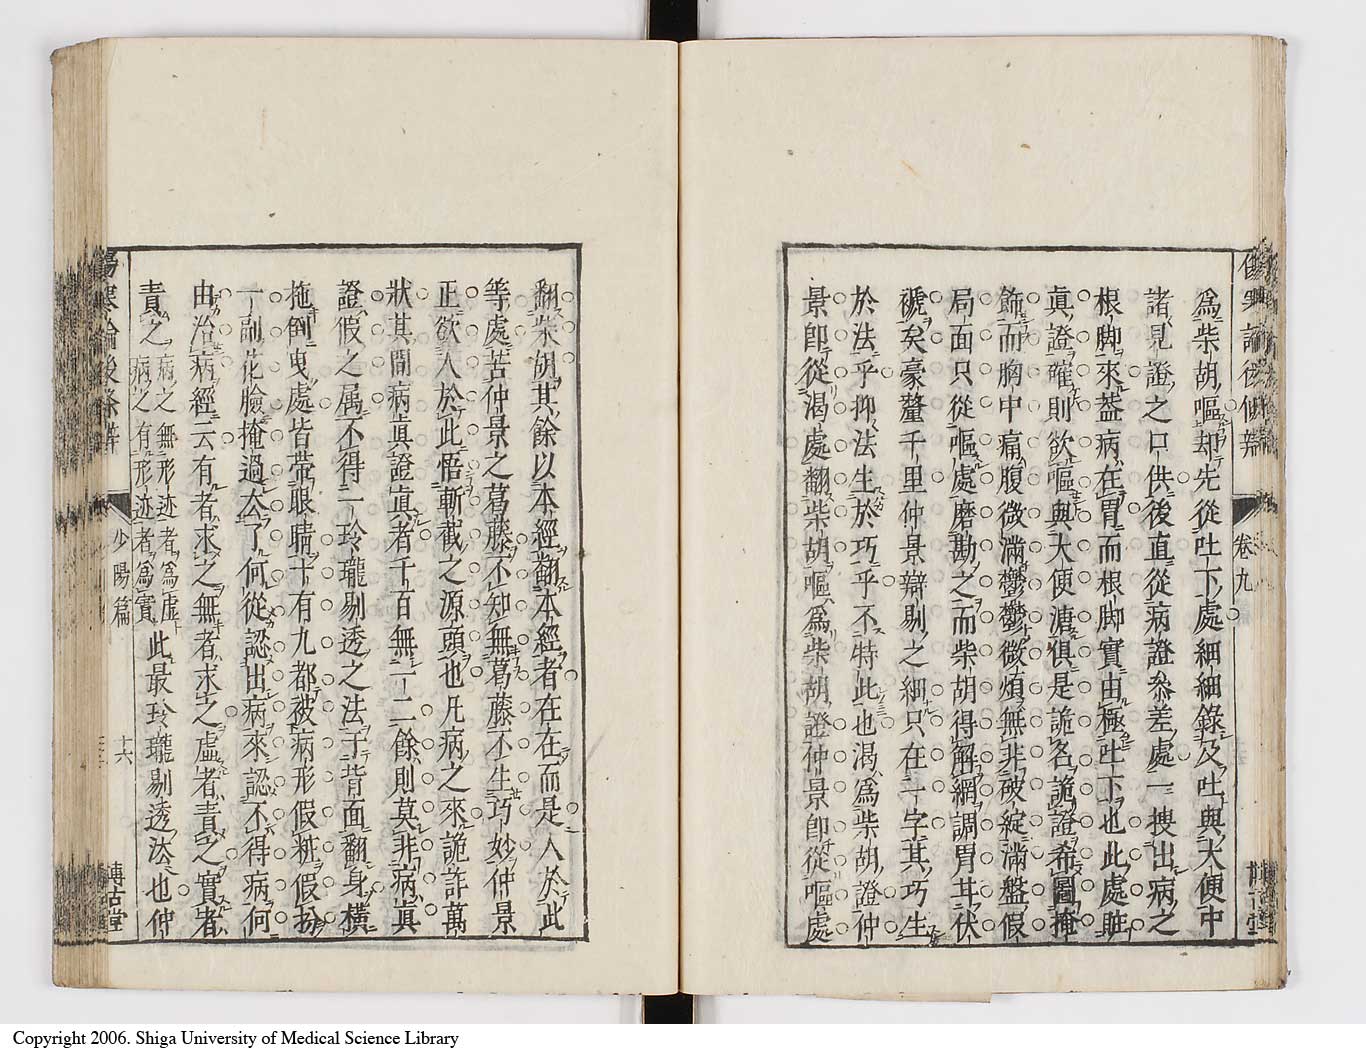 爲柴胡嘔却先從吐下處細細錄及吐與大便中
諸見證之口供後直從病證叅差處一搜出病之
根脚來葢病在胃而根脚實由極吐下也此處賍
眞證確則欲嘔與大便溏俱是詭名詭證希圖掩
飾而胸中痛腹微滿鬱鬱微煩無非破綻滿盤假
局面只從嘔處磨勘之而柴胡得解網調胃其伏
禠矣豪釐千里仲景辯剔之細只在二字其巧生
於法乎抑法生於巧乎不特此也渴爲柴胡證仲
景卽從渴處翻柴胡嘔爲柴胡證仲景卽從嘔處
卷九
翻柴胡其餘以本經翻本經者在在而是人於此
等處苦仲景之葛藤不知無葛藤不生巧妙仲景
正欲人於此悟斬截之源頭也凡病之來詭詐萬
狀其間病眞證眞者千百無一二餘則莫非病眞
證假之属不得一玲瓏剔透之法子背面翻身橫
拖倒曳處皆帶眼睛十有九都被病形假粧假扮
一副花臉掩過去了何從認出病來認不得病何
由治病經云有者求之無者求之虛者責之實者
責之病之無形迹者爲虛病之有形迹者爲實此最玲瓏剔透法也仲
傷寒論後條辨
少陽篇
十六
博古堂
Copyright 2006. Shiga University of Medical Science Library